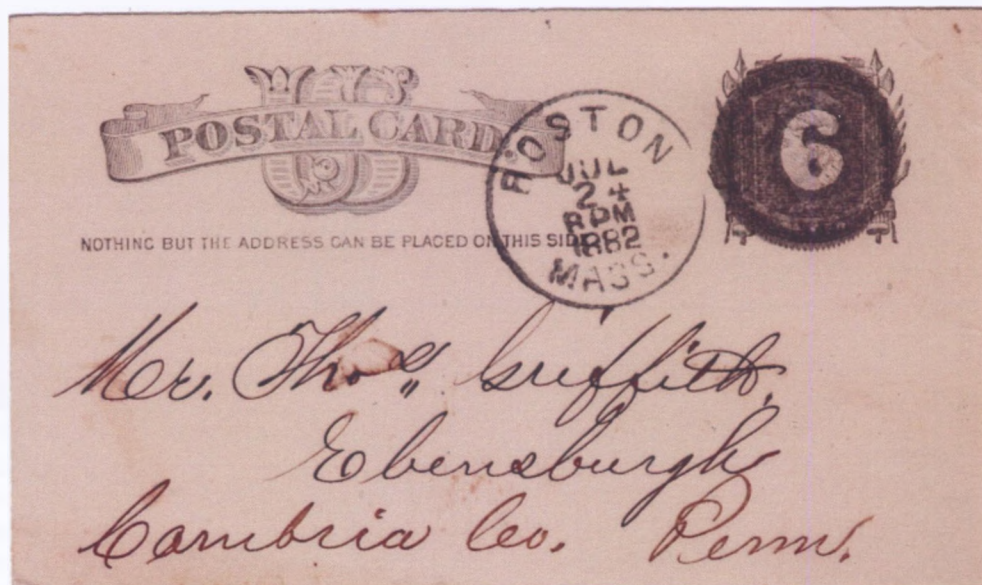 US
POSTAL CARD
NOTHING BUT THE ADDRESS CAN BE PLACED ON THIS SIDE
BOSTON
JUL
24
8 PM
1882
MASS.
6
Mr. Thos. Griffith,
Ebensburgh
Cambria Co. Penn.